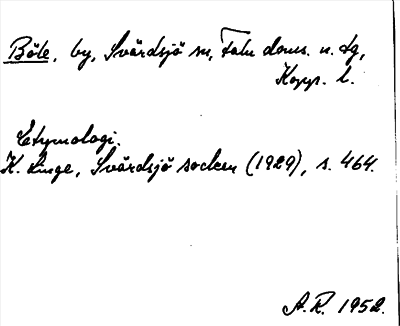 Böle, by, Svärdsjö sn, Falu doms. n. tg,
Kopp. l.
Etymologi.
K. Linge, Svärdsjö socken (1929), s. 464.
A.R. 1952.